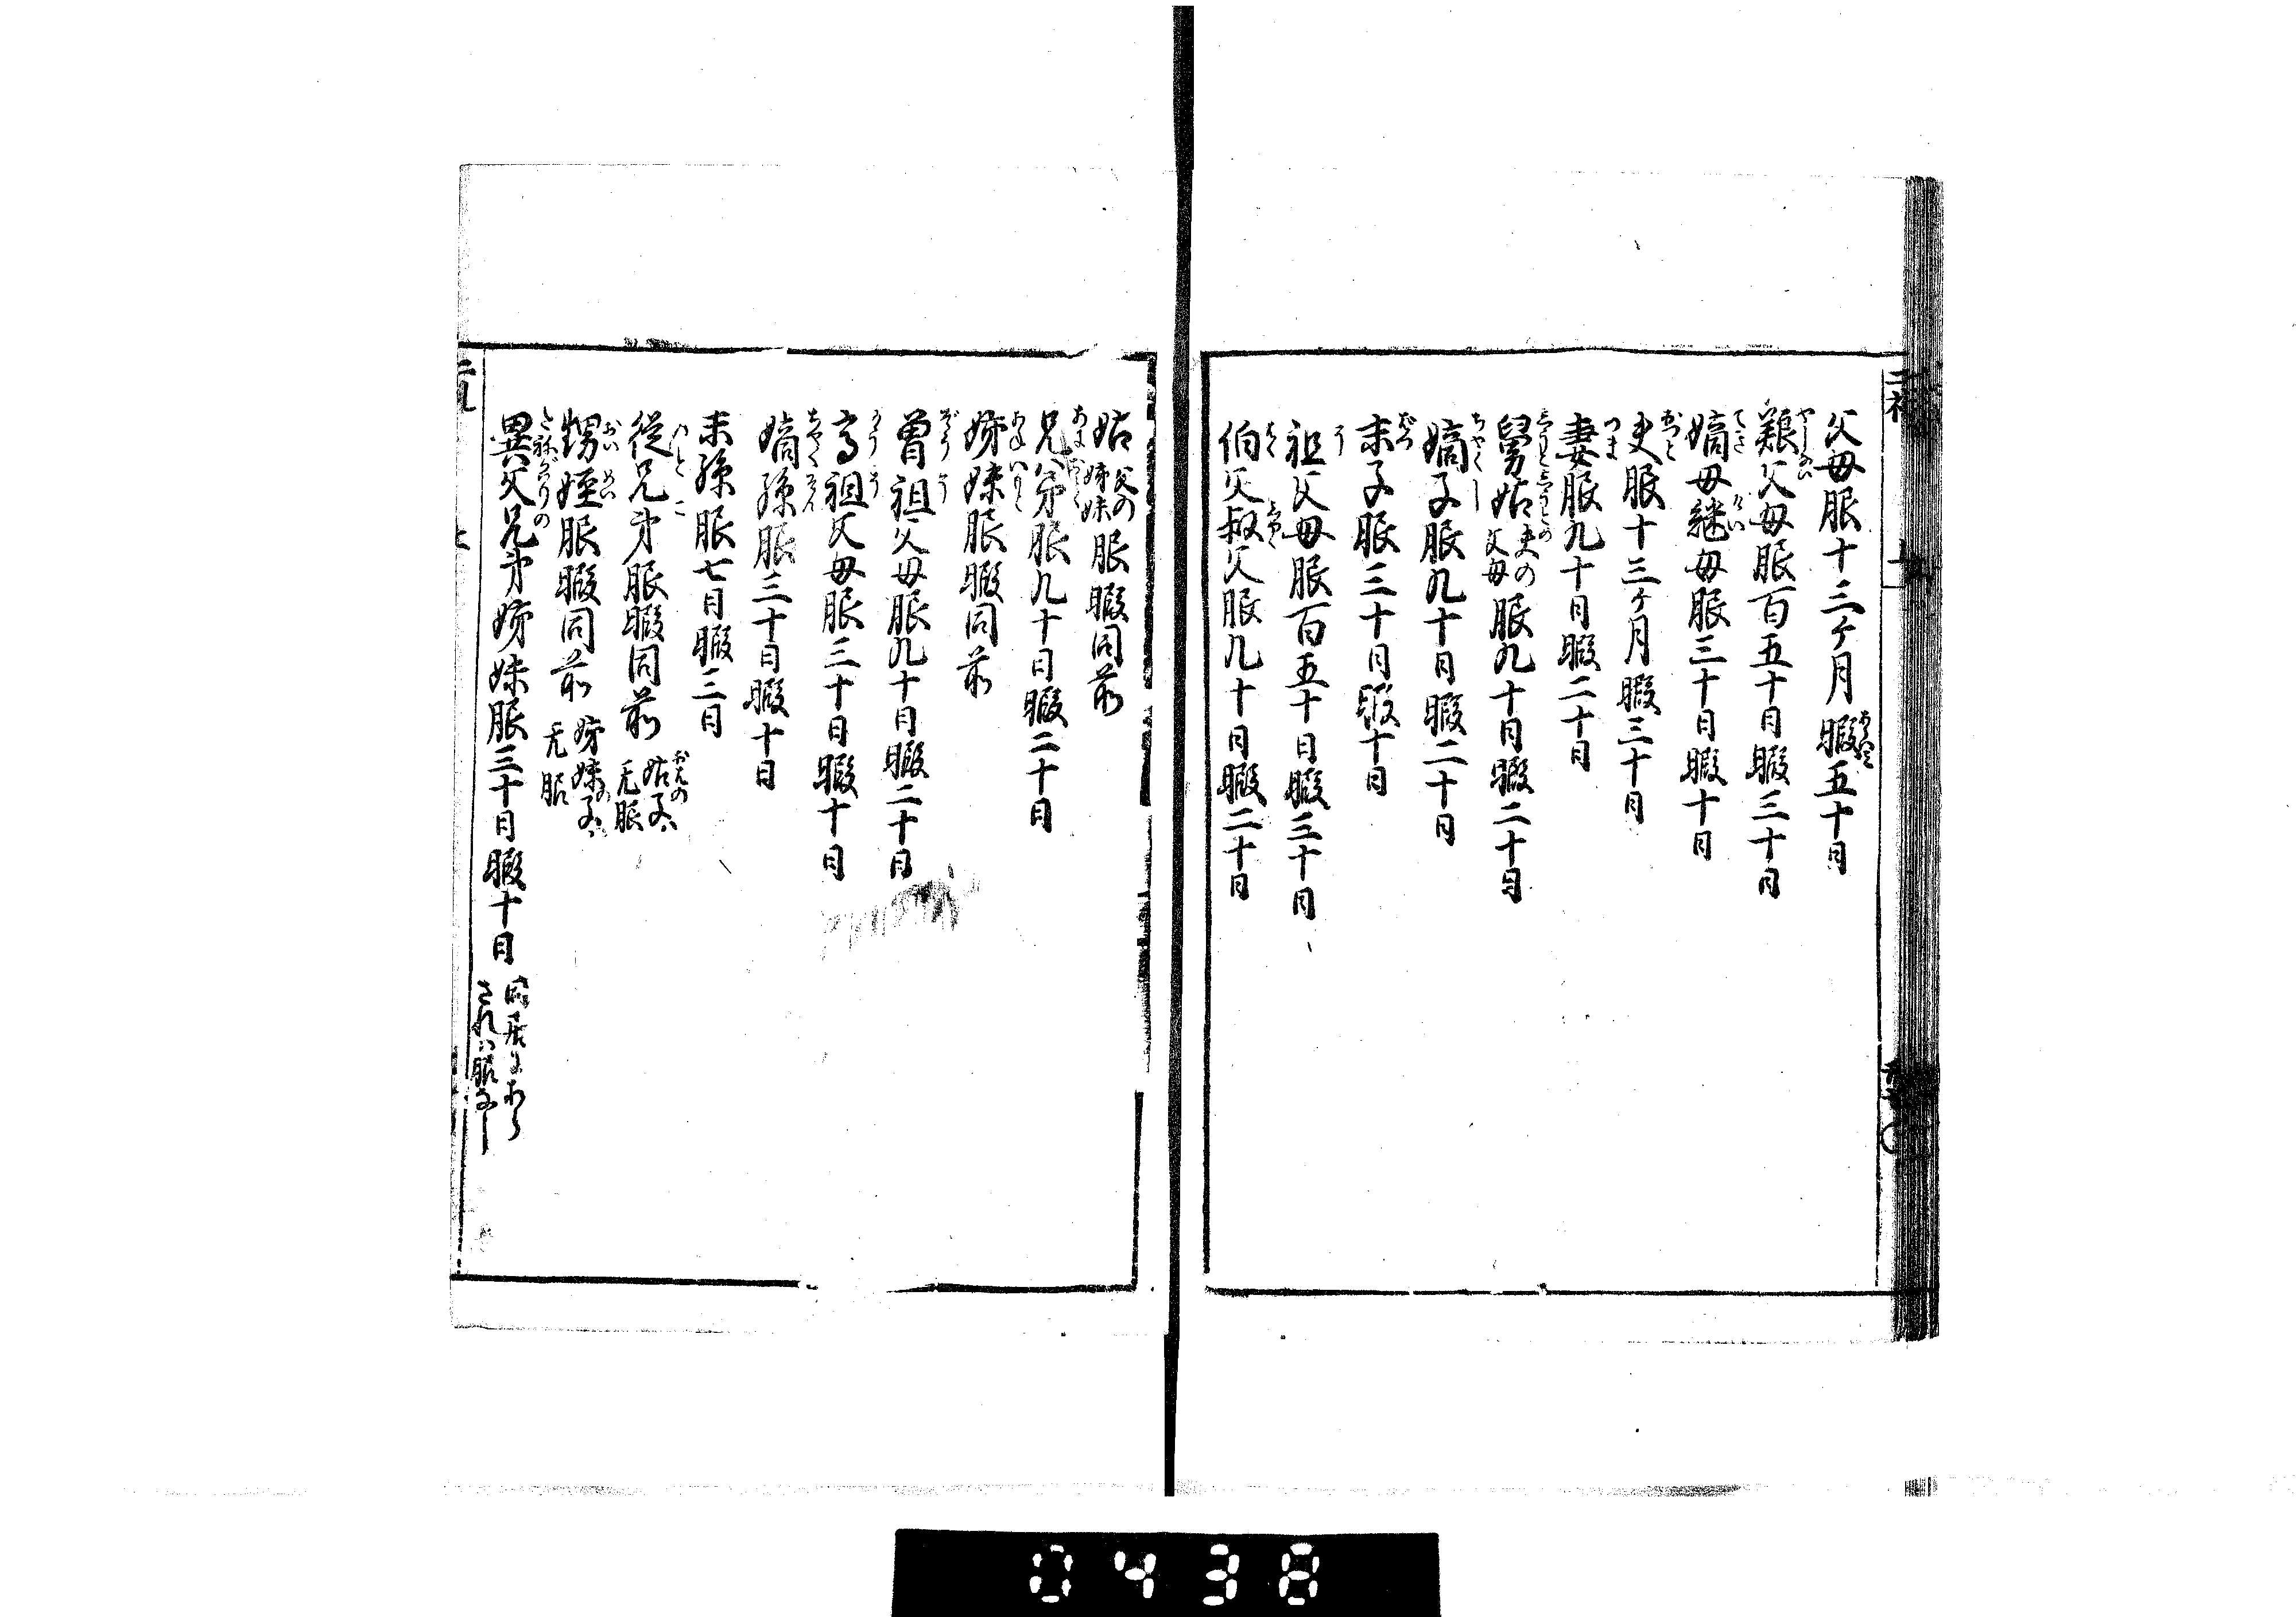 父母服十三ケ月暇五十日
養父母服百五十日暇三十日
嫡母継母服三十日暇十日
夫服十三ケ月暇三十日
妻服九十日暇二十日
舅姑夫の父母服九十日暇二十日
嫡子服九十日暇二十日
末子服三十日暇十日
祖父母服百五十日暇三十日
伯父叔父服九十日暇二十日
姑父の姉妹服暇同前
兄弟服九十日暇二十日
姉妹服暇同前
曽祖父母服九十日暇二十日
高祖父母服三十日暇十日
嫡孫服三十日暇十日
末孫服七日暇三日
従兄弟服暇同前姑の子ハ无服
甥姪服暇同前姉妹の子ハ无服
異父兄弟姉妹服三十日暇十日同居にあらされハ服なし
0438